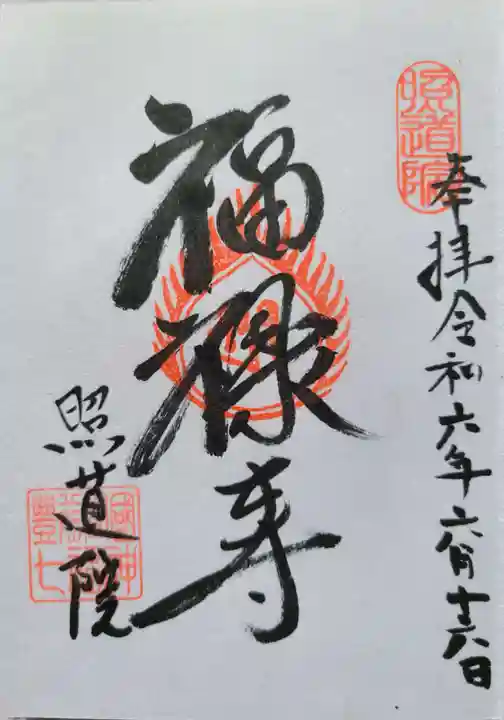 照道院
奉拝令和六年六月十六日
福禄寿
照道院